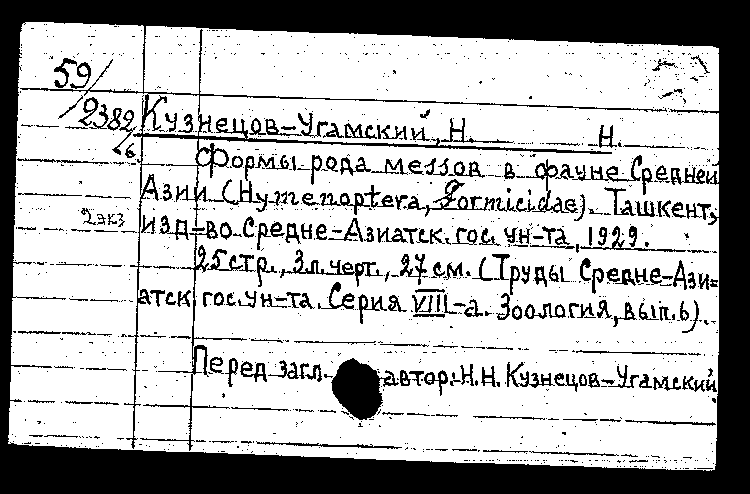 59/
2382
26
Кузнецов-Угамский, Н. Н.
Формы рода мессов в фауне Средней
Азии (Hymenoptera, Formicidae). Ташкент,
2 экз
изд-во Средне-Азиатск. гос. ун-та, 1929.
25 стр., 3 л. черт., 27 см. (Труды Средне-Ази=
атск. гос. ун-та. Серия VIII-а. Зоология, вып. 6).
Перед загл. автор: Н.Н. Кузнецов-Угамский